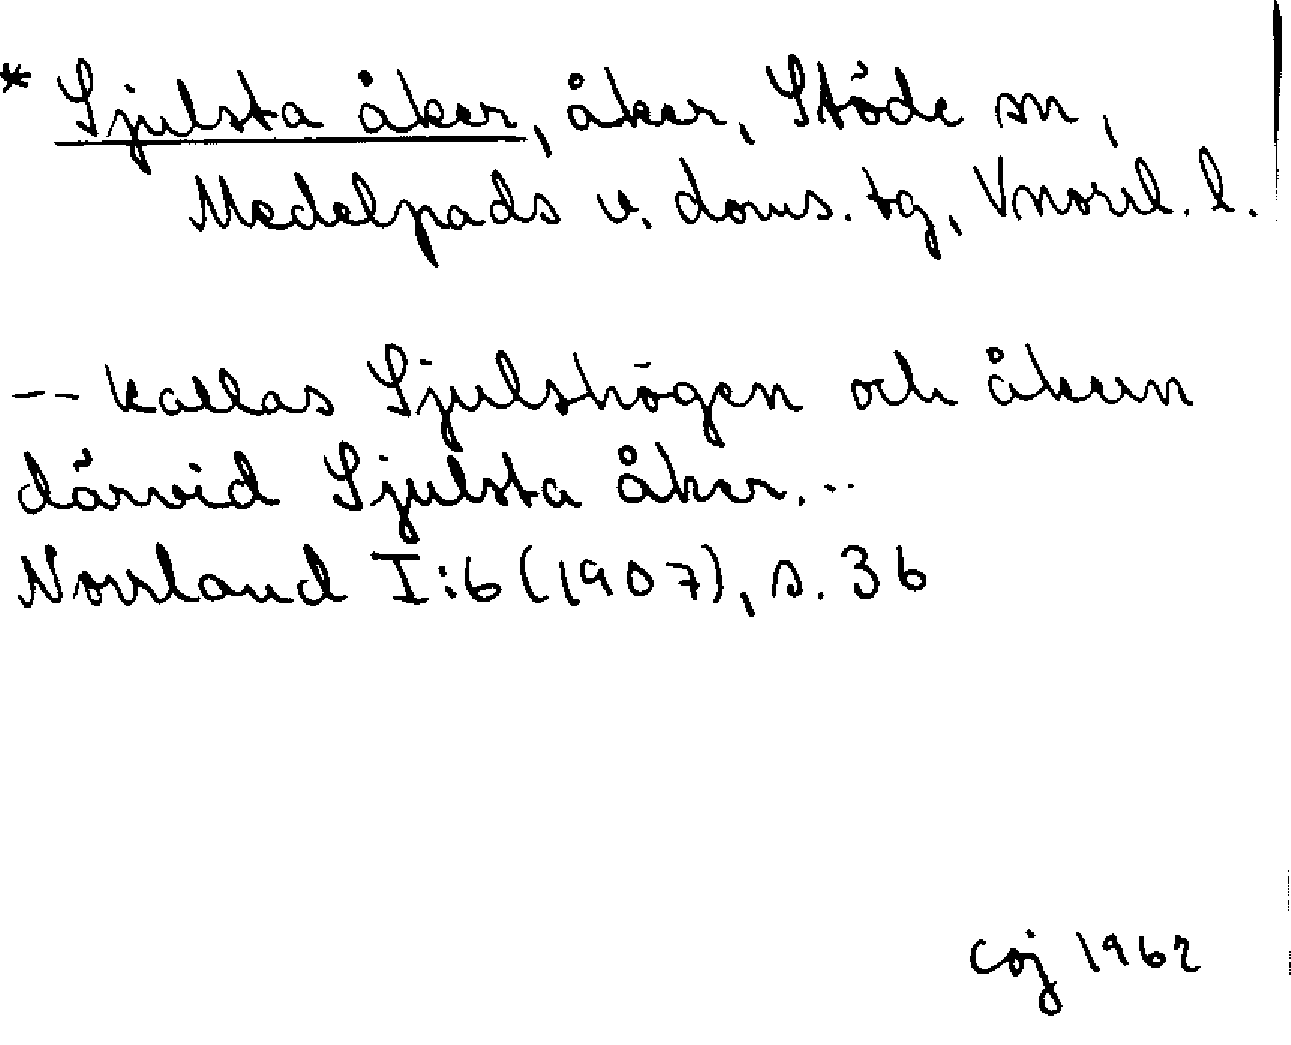 * Sjulsta åker, åker, Stöde sn,
Medelpads v. doms. tg, Vnorrl. l.
-- kallas Sjulshögen och åkern
därvid Sjulsta åker. --
Norrland I:6 (1907), s. 36
Coj 1962